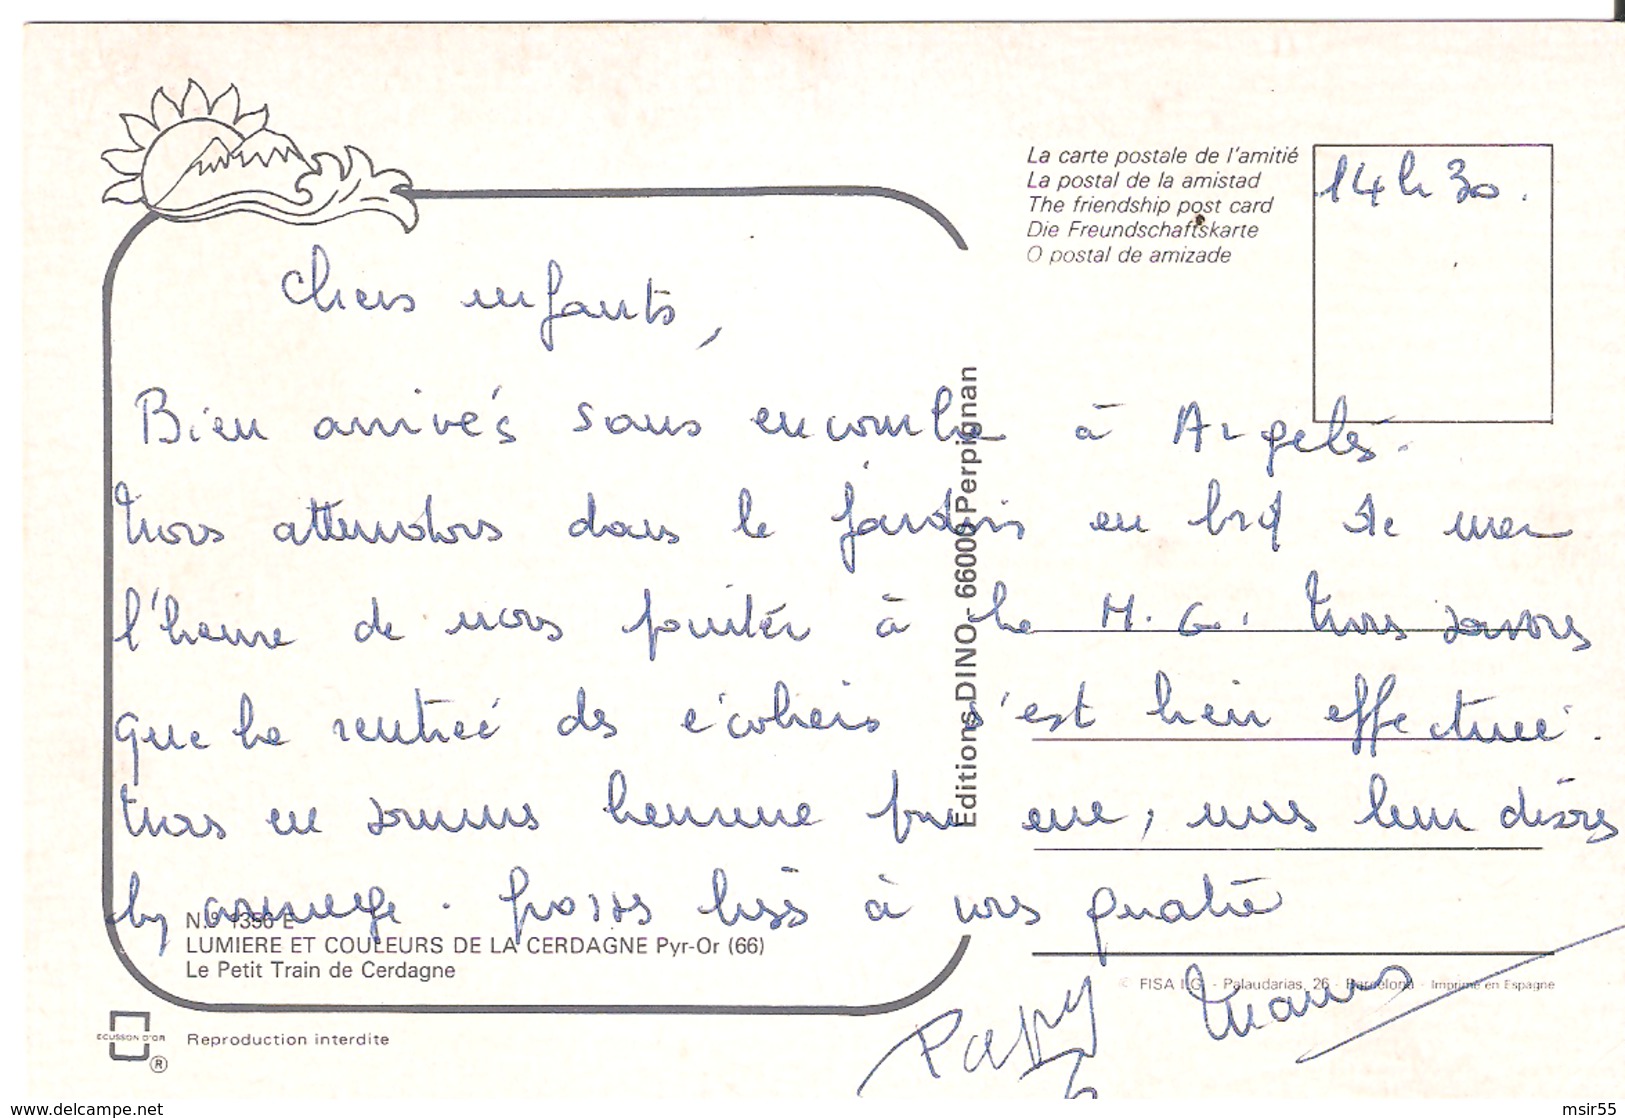 La carte postale de l'amitié
La postal de la amistad
The friendship post card
Die Freundschaftskarte
O postal de amizade
14 h 30.
Chers enfants,
Bien arrivés sans encombre à Argelès.
Nous attendons dans le jardin en bord de mer
l'heure de nous pointer à la M. G. Nous savons
que la rentrée des écoliers s'est bien effectuée.
Nous en sommes heureux pour eux, nous leur disons
bon courage. Grosses bises à vous quatre
Papy Mamie
N.º 1356 E
LUMIERE ET COULEURS DE LA CERDAGNE Pyr-Or (66)
Le Petit Train de Cerdagne
Editions DINO - 66000 Perpignan
© FISA I.G. - Palaudarias, 26 - Barcelona - Imprimé en Espagne
ECUSSON D'OR
®
Reproduction interdite
www.delcampe.net
msir55